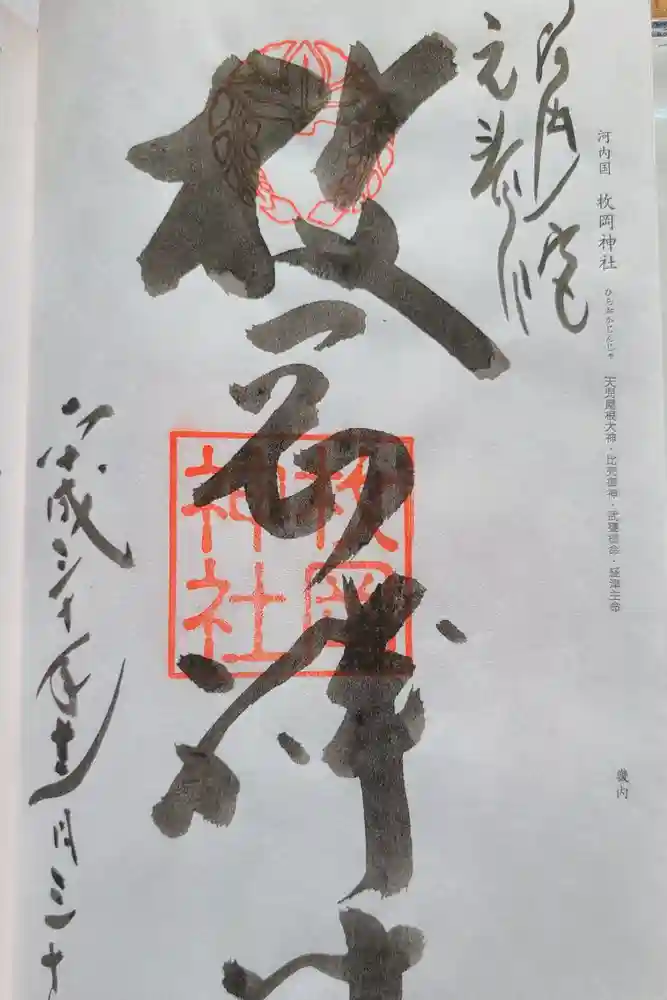 河内国 枚岡神社 ひらおかじんじゃ 天児屋根大神・比売御神・武甕槌命・経津主命
畿内
河内国一宮
元春日
枚岡神社
枚岡
神社
平成三十年十一月三十